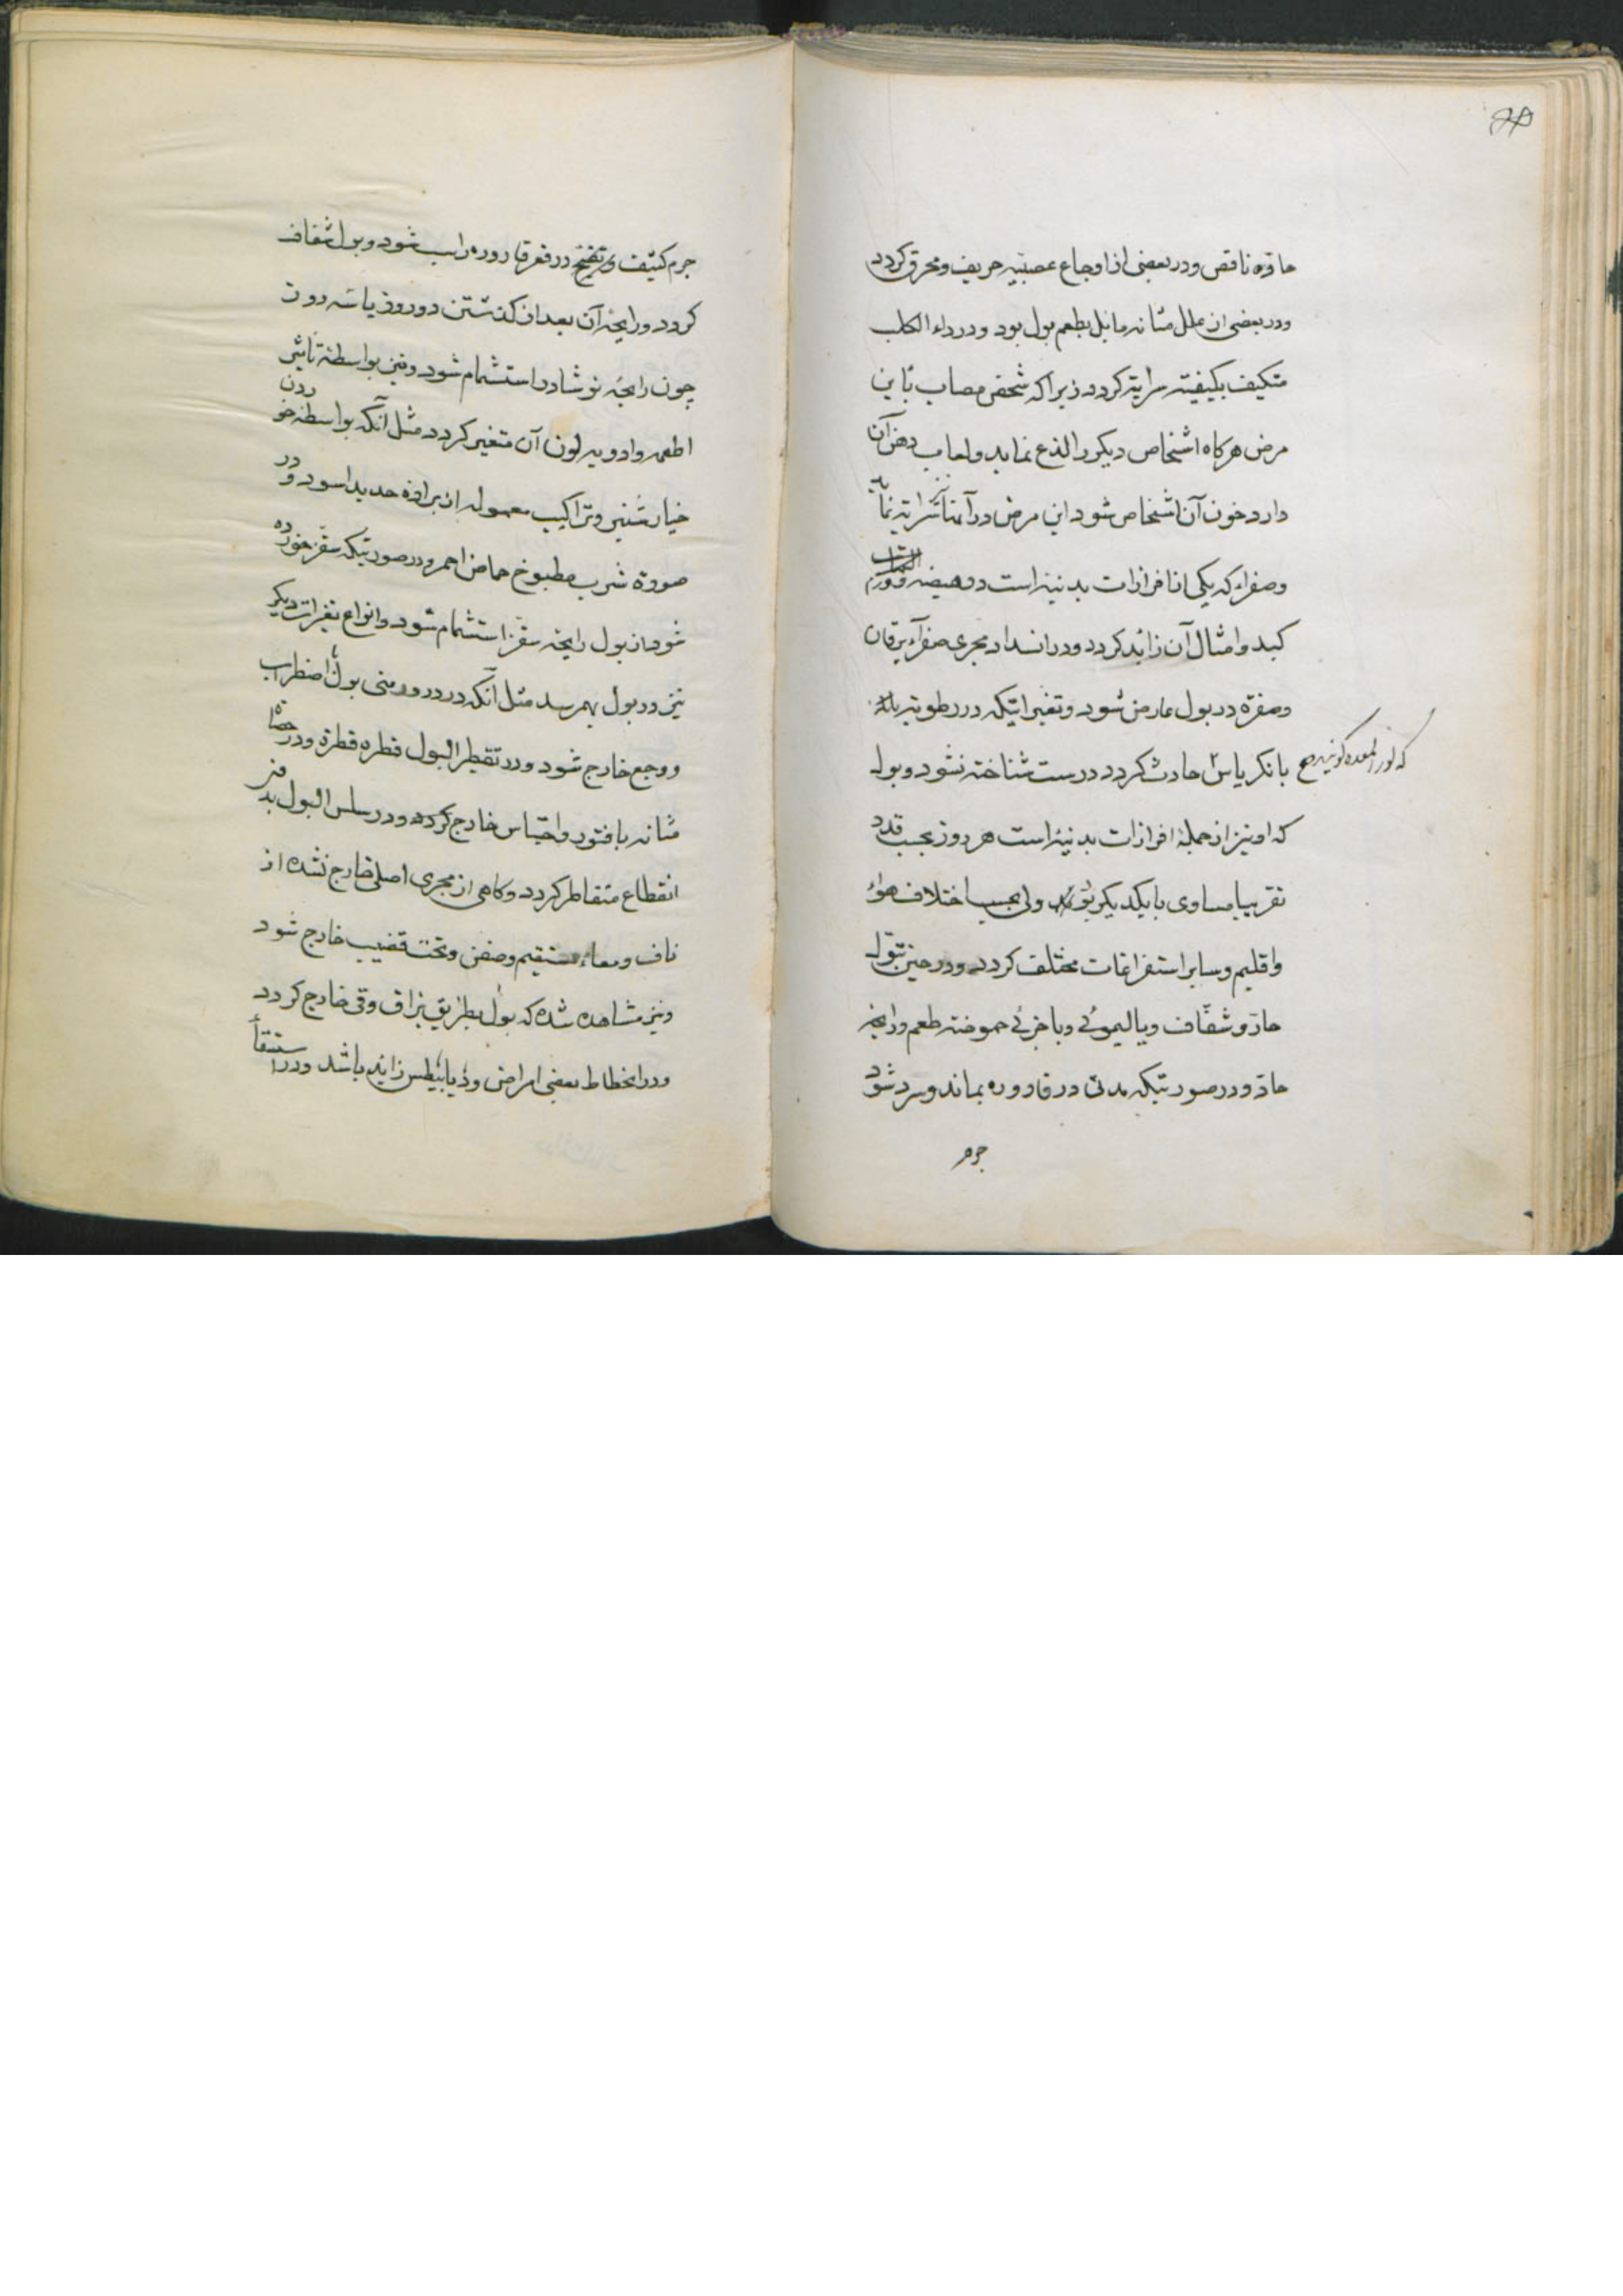 حادّه ناقص ودر بعضی از اوجاع عصبیّه حریف ومحرق کردد
ودر بعضی از علل مثانه مایل بطعم بول بود ودر داء الکلب
متکیف بکیفیته سرایته کردد زیرا که شخص مصاب باین
مرض هرکاه اشخاص دیکر را لذع نماید ولعاب دهن آن
دارد خون آن اشخاص شود این مرض در آنها سرایته نماید
وصفراء که یکی از افرازات بدنیّه است در هیضه وورم
کبد وامثال آن زائد کردد ودر انسداد مجری صفراء یرقان
وصفرة در بول عارض شود وتغیراتیکه در رطوبته
بانکریاس حادث کردد درست شناخته نشود وبول
که لوز المعده کویند صح
که او نیز از جملهٔ افرازات بدنیّه است هر روز بحسب قدر
تقریبا مساوی بایکدیکر بود ولی بحسب اختلاف هواء
واقلیم وسایر استفراغات مختلف کردد ودر حین تبوّل
حادّ وشفّاف ویا لیموئی وبا جزئی حموضته طعم ورایحه
حادّ ودر صورتیکه مدتی در قاروره بماند وسرد شود
جرم
جرم کثیف در قعر قاروره راسب شود وبول شفاف
کردد ورایحهٔ آن بعد از کذشتن دو روز یا سه روز
چون رایحهٔ نوشادر استشمام شود ونیز بواسطهٔ تاثیر
اطعمه وادویه لون آن متغیر کردد مثل آنکه بواسطهٔ خوردن
خیارشنبر وتراکیب معموله از برادهٔ حدید اسود ودر
صورة شرب مطبوخ حماض احمر ودر صورتیکه سقز خورده
شود از بول رایحهٔ سقز استشمام شود وانواع تغیرات دیکر
نیز در بول بهم رسد مثل آنکه در درورمنی بول باضطراب
ووجع خارج شود ودر تقطیر البول قطره قطرة ودر حصاة
مثانه با فتور واحتباس خارج کردد ودر سلس البول بدون
انقطاع متقاطر کردد وکاهی از مجری اصلی خارج نشده از
ناف ومعاء مستقیم وصفن وتحت قضیب خارج شود
ونیز مشاهده شده که بول بطریق بزاق وقی خارج کردد
ودر انحطاط بعضی امراض ودیابیطس زاید باشد ودر استسقاء